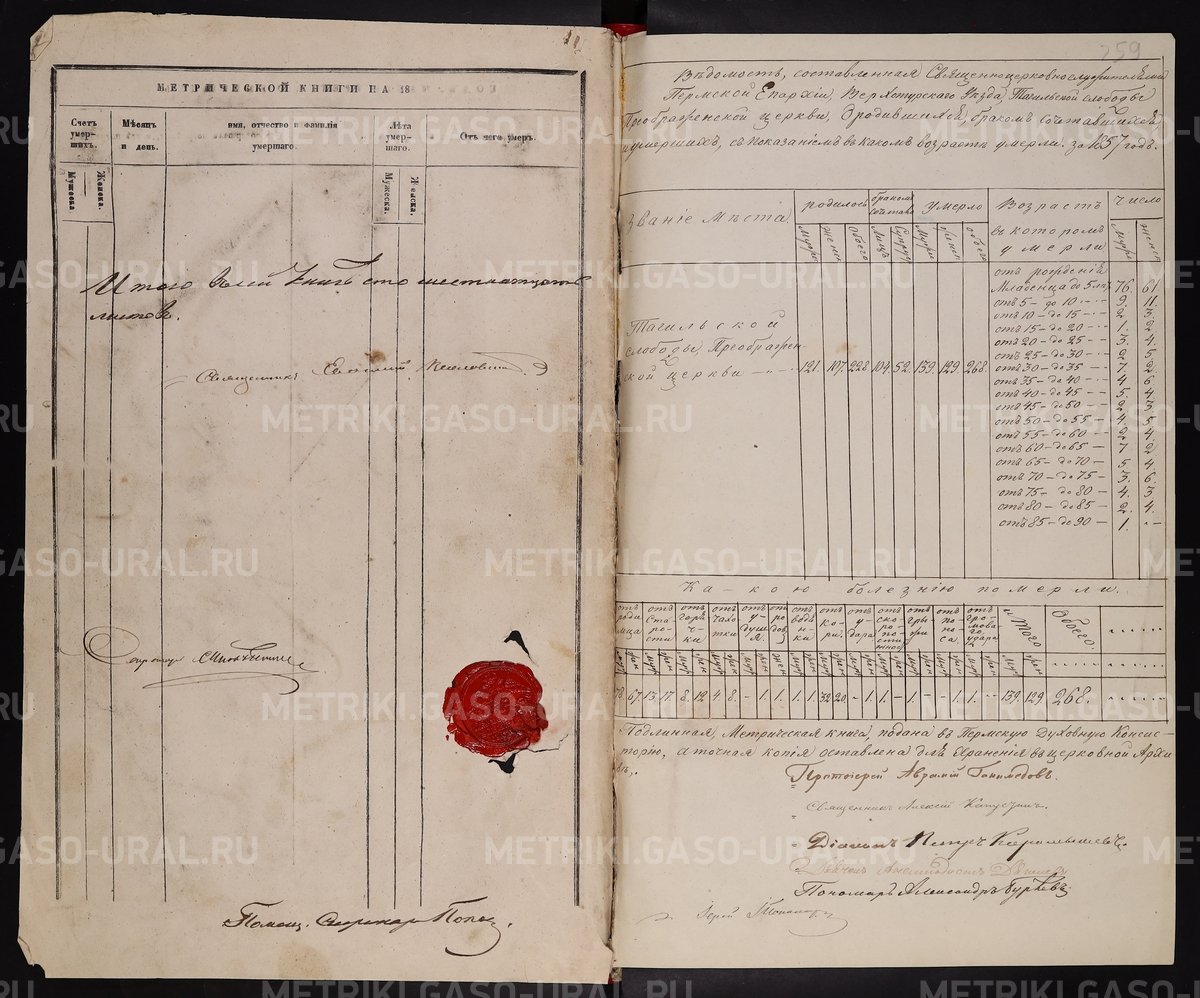 МЕТРИЧЕСКОЙ КНИГИ НА 18
Счетъ умер-шихъ.
Мѣсяцъ и день.
имя, отчество и фамилія умершаго.
Лѣта умер-шаго.
Отъ чего умеръ.
Мужеска
Женска.
Мужеска.
Женска.
Итого въ сей книгѣ сто шестнадцать
листовъ.
Священникъ Евгеній
Секретарь
Помощ. Секретаря Поповъ
259
Вѣдомость, составленная Священноцерковнослужителями
Пермской Епархіи, Верхотурскаго Уѣзда, Тагильской слободы
Преображенской церкви, О родившихся, бракомъ сочетавшихся,
и умершихъ, съ показаніемъ въ какомъ возрастѣ умерли. за 1857 годъ.
Званіе мѣста
родилось
бракомъ сочетало
умерло
Возрастъ въ которомъ умерли
Число
Муж. Женс. Обоего Лицъ Супруж. Муж. Женс. Обоего Мужс. Женс.
отъ рожденія
Младенца до 5 лѣтъ 76. 61
отъ 5 – до 10 – 9. 11.
отъ 10 – до 15 – 2. 3.
отъ 15 – до 20 – 1. 2
отъ 20 – до 25 – 3. 4.
отъ 25 – до 30 – 2 5
отъ 30 – до 35 – 7 2
отъ 35 – до 40 – 4 6
отъ 40 – до 45 – 5. 4
отъ 45 – до 50 – 2 3
отъ 50 – до 55 – 4. 5
отъ 55 – до 60 – 2 4.
отъ 60 – до 65 – 7 2
отъ 65 – до 70 – 5 4
отъ 70 – до 75 – 3. 6.
отъ 75 – до 80 – 4. 3
отъ 80 – до 85 – 2. 4.
отъ 85 – до 90 – 1. –
Тагильской
слободы, Преображен
ской церкви – 121. 107. 228 104. 52. 139. 129 268.
Ка-кою болезнію померли.
отъ родимца
отъ старости
отъ горячки
отъ чахотки
отъ удушья
отъ родовъ
отъ водянки
отъ кори
отъ удара
отъ скоропостижно
отъ грыжи
отъ поноса
отъ громоваго удара
Итого
Обоего.
78. 67. 13. 17. 8. 12 4. 8. – 1. 1. 1. 1. 32 20. – 1. 1. – 1. – – 1. 1. – 139. 129 268.
Подлинная Метрическая книга, подана въ Пермскую Духовную Консис-
торію, а точная копія оставлена для храненія въ церковной Архи
вѣ.
Протоіерей Аврамій Ганимедовъ.
Священникъ Алексій Капустинъ.
Діаконъ Петръ Карамышевъ.
Дьячекъ
Пономарь Александръ Гурьевъ
Іерей
METRIKI.GASO-URAL.RU